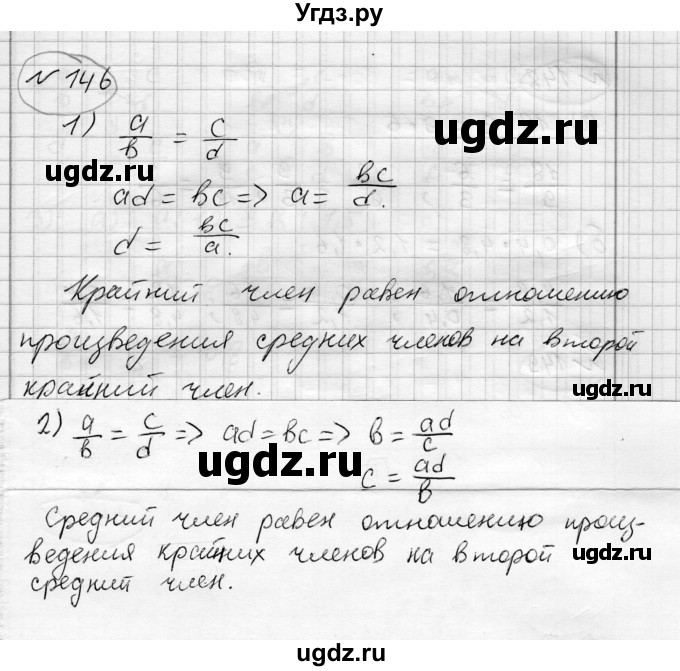 Угдз.ру
№146
1) a/b = c/d
ugdz.ru
ugdz.ru
ad = bc => a = bc/d.
d = bc/a.
Крайний член равен отношению
произведения средних членов на второй
крайний член.
ugdz.ru
2) a/b = c/d => ad = bc => b = ad/c
ugdz.ru
c = ad/b
Средний член равен отношению произ-
ведения крайних членов на второй
ugdz.ru
средний член.
ugdz.ru